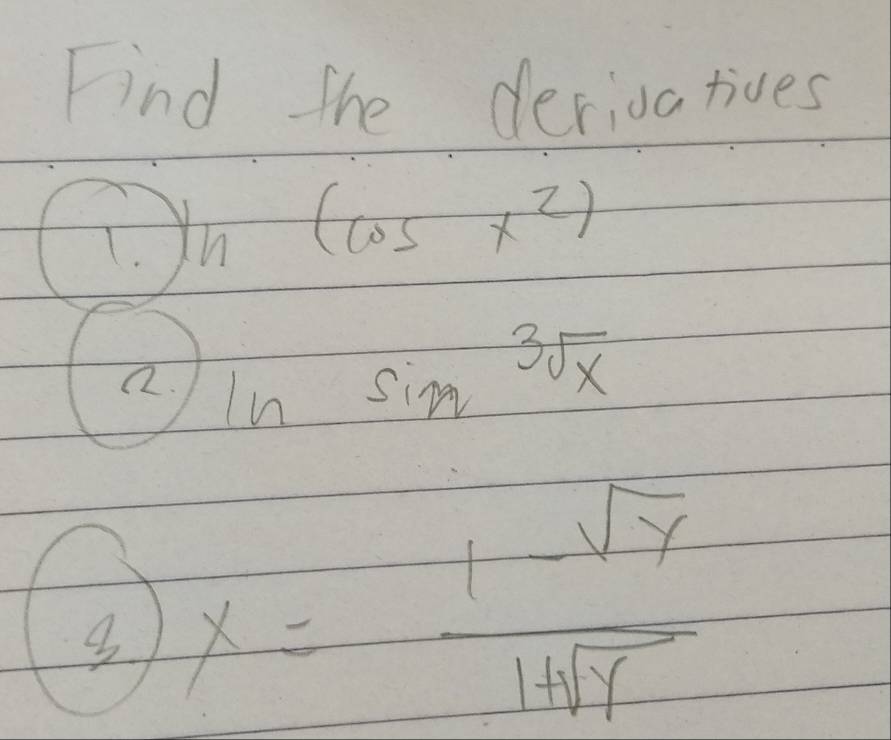 Find the derivatives
1. ln (cos x²)
2. ln sin ³√x
3 x = (1 - √y)/(1+√y)